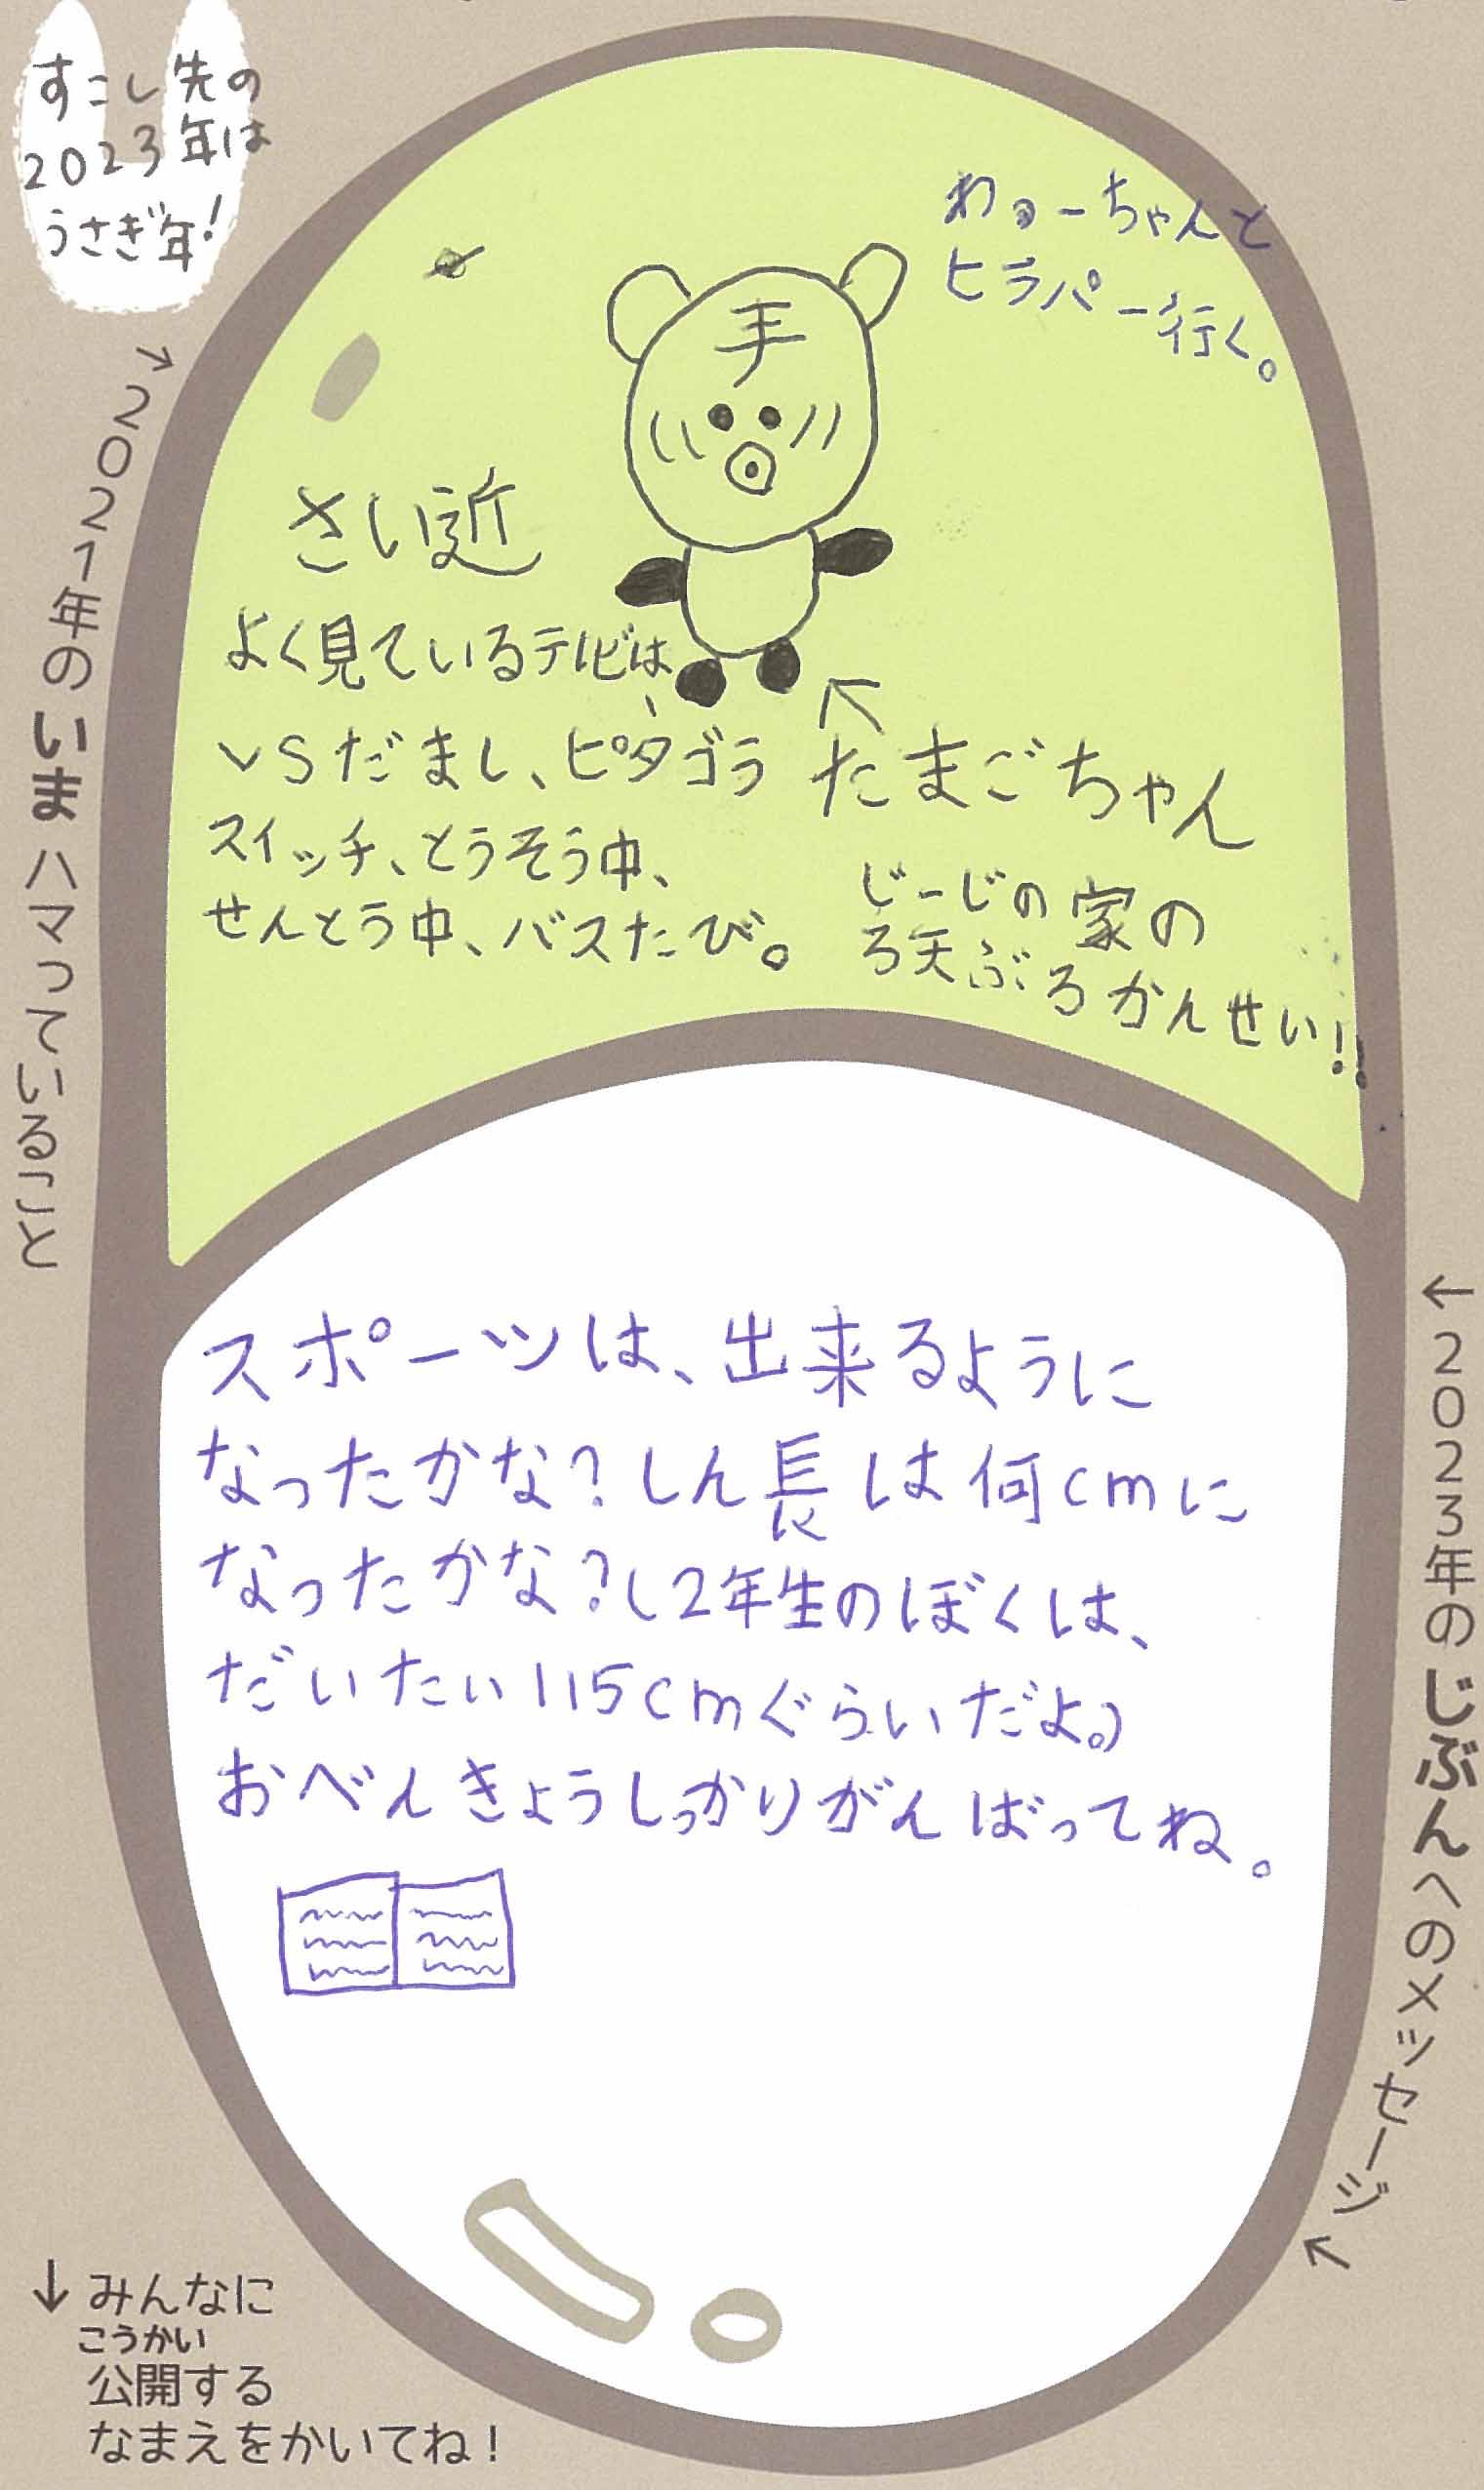 すこし先の
2023年は
うさぎ年!
↘2021年のいまハマっていること
わぁーちゃんと
ヒラパー行く。
手
さい近
よく見ているテレビは、
VSだまし、ピタゴラ
スイッチ、とうそう中、
せんとう中、バスたび。
↖
たまごちゃん
じーじの家の
ろ天ぶろかんせい!!
←2023年のじぶんへのメッセージ↖
スポーツは、出来るように
なったかな?しん長は何cmに
なったかな?(2年生のぼくは、
だいたい115cmぐらいだよ。)
おべんきょうしっかりがんばってね。
↓みんなに
こうかい
公開する
なまえをかいてね!